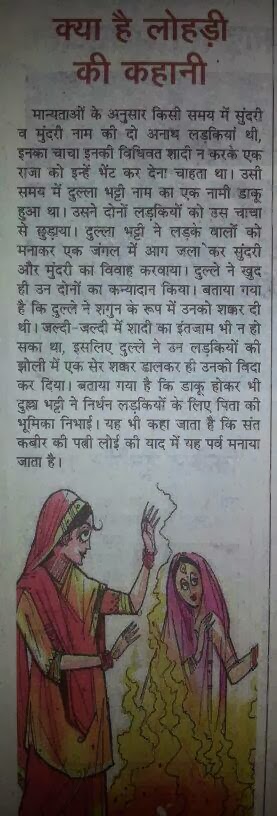 क्या है लोहड़ी
की कहानी
मान्यताओं के अनुसार किसी समय में सुंदरी
व मुंदरी नाम की दो अनाथ लड़कियां थी,
इनका चाचा इनकी विधिवत शादी न करके एक
राजा को इन्हें भेंट कर देना चाहता था। उसी
समय में दुल्ला भट्टी नाम का एक नामी डाकू
हुआ था। उसने दोनों लड़कियों को उस चाचा
से छुड़ाया। दुल्ला भट्टी ने लड़के वालों को
मनाकर एक जंगल में आग जला कर सुंदरी
और मुंदरी का विवाह करवाया। दुल्ले ने खुद
ही उन दोनों का कन्यादान किया। बताया गया
है कि दुल्ले ने शगुन के रूप में उनको शक्कर दी
थी। जल्दी-जल्दी में शादी का इंतजाम भी न हो
सका था, इसलिए दुल्ले ने उन लड़कियों की
झोली में एक सेर शक्कर डालकर ही उनको विदा
कर दिया। बताया गया है कि डाकू होकर भी
दुल्ला भट्टी ने निर्धन लड़कियों के लिए पिता की
भूमिका निभाई। यह भी कहा जाता है कि संत
कबीर की पत्नी लोई की याद में यह पर्व मनाया
जाता है।